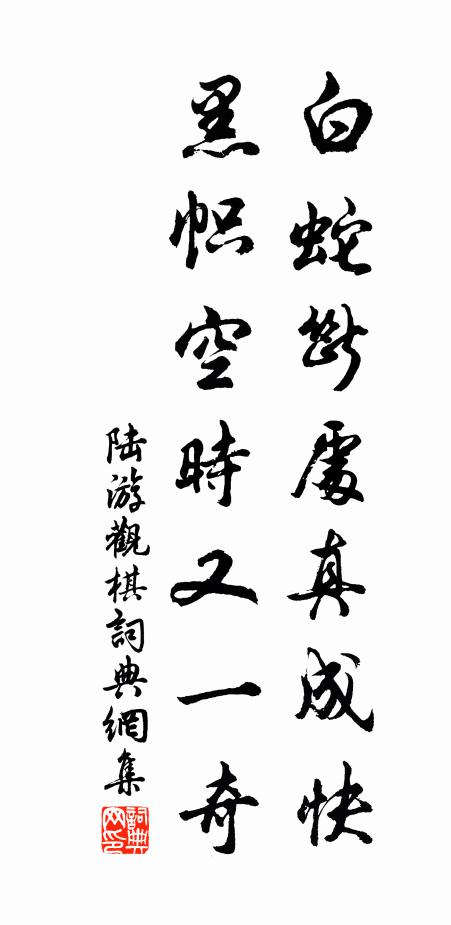 白蛇斷處真成快
黑幟空時又一奇
陆游觀棋詞典網集
詞典网印